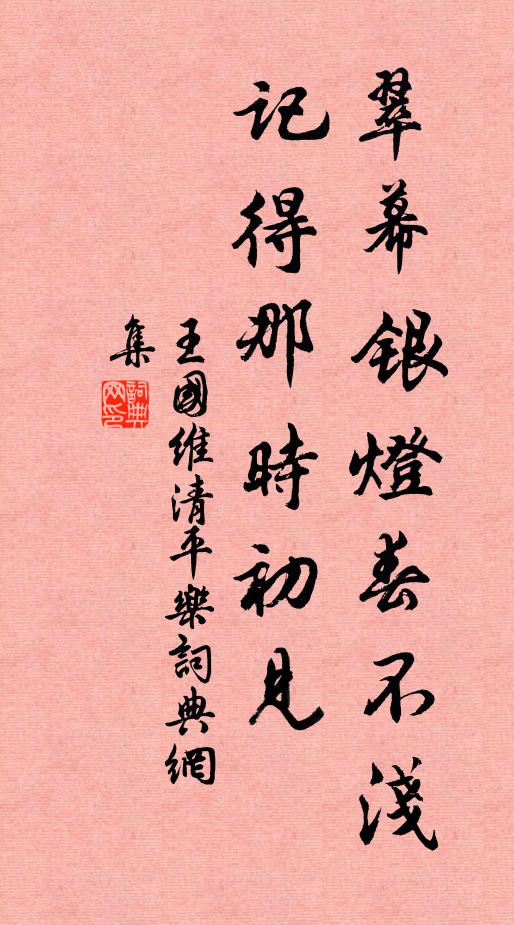 翠幕銀燈春不淺
記得那時初見
王國維清平樂詞典網
集
詞典網印